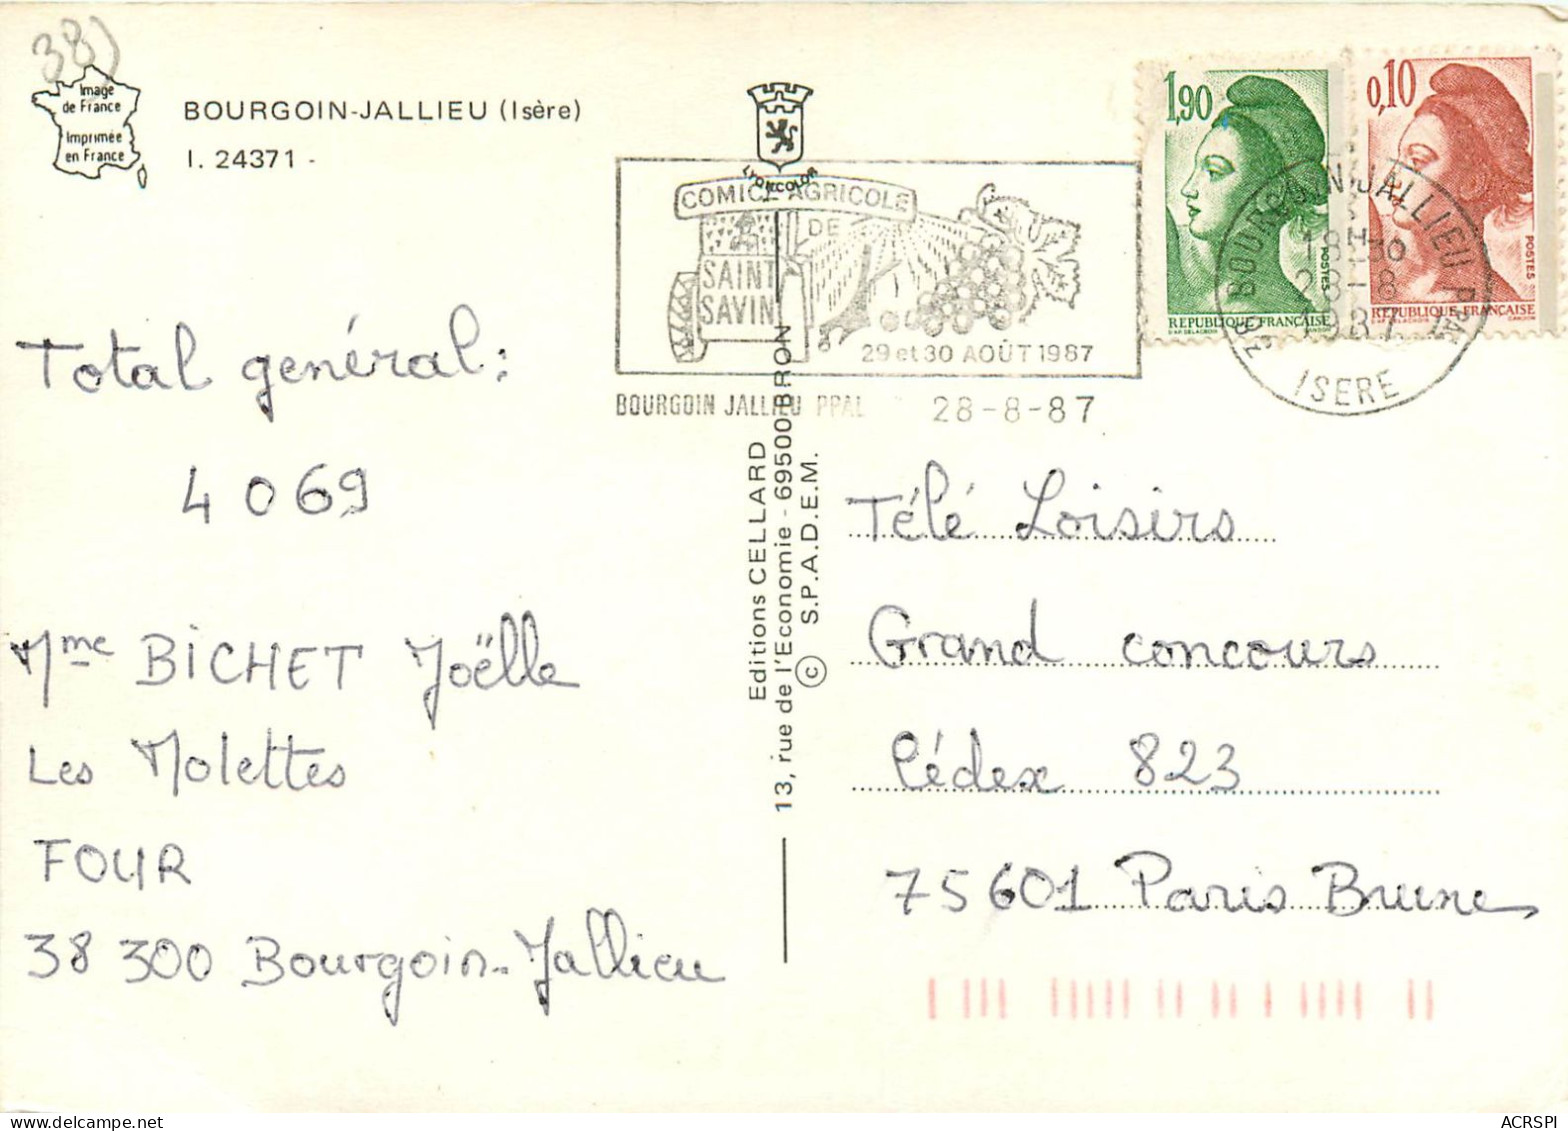 38)
Image
de France
Imprimée
en France
BOURGOIN-JALLIEU (Isère)
I. 24371 -
LYONCOLOR
COMICE AGRICOLE
DE
SAINT
SAVIN
29 et 30 AOÛT 1987
BOURGOIN JALLIEU PPAL 28-8-87
1,90
POSTES
REPUBLIQUE FRANÇAISE
0,10
POSTES
REPUBLIQUE FRANÇAISE
38 BOURGOIN JALLIEU PPAL
18H30
28-8
1987
ISERE
Total général :
4 069
Mme BICHET Joëlle
Les Molettes
FOUR
38 300 Bourgoin-Jallieu
Editions CELLARD
13, rue de l'Economie - 69500 BRON
© S.P.A.D.E.M.
Télé Loisirs
Grand concours
Cédex 823
75601 Paris Brune
ACRSPI